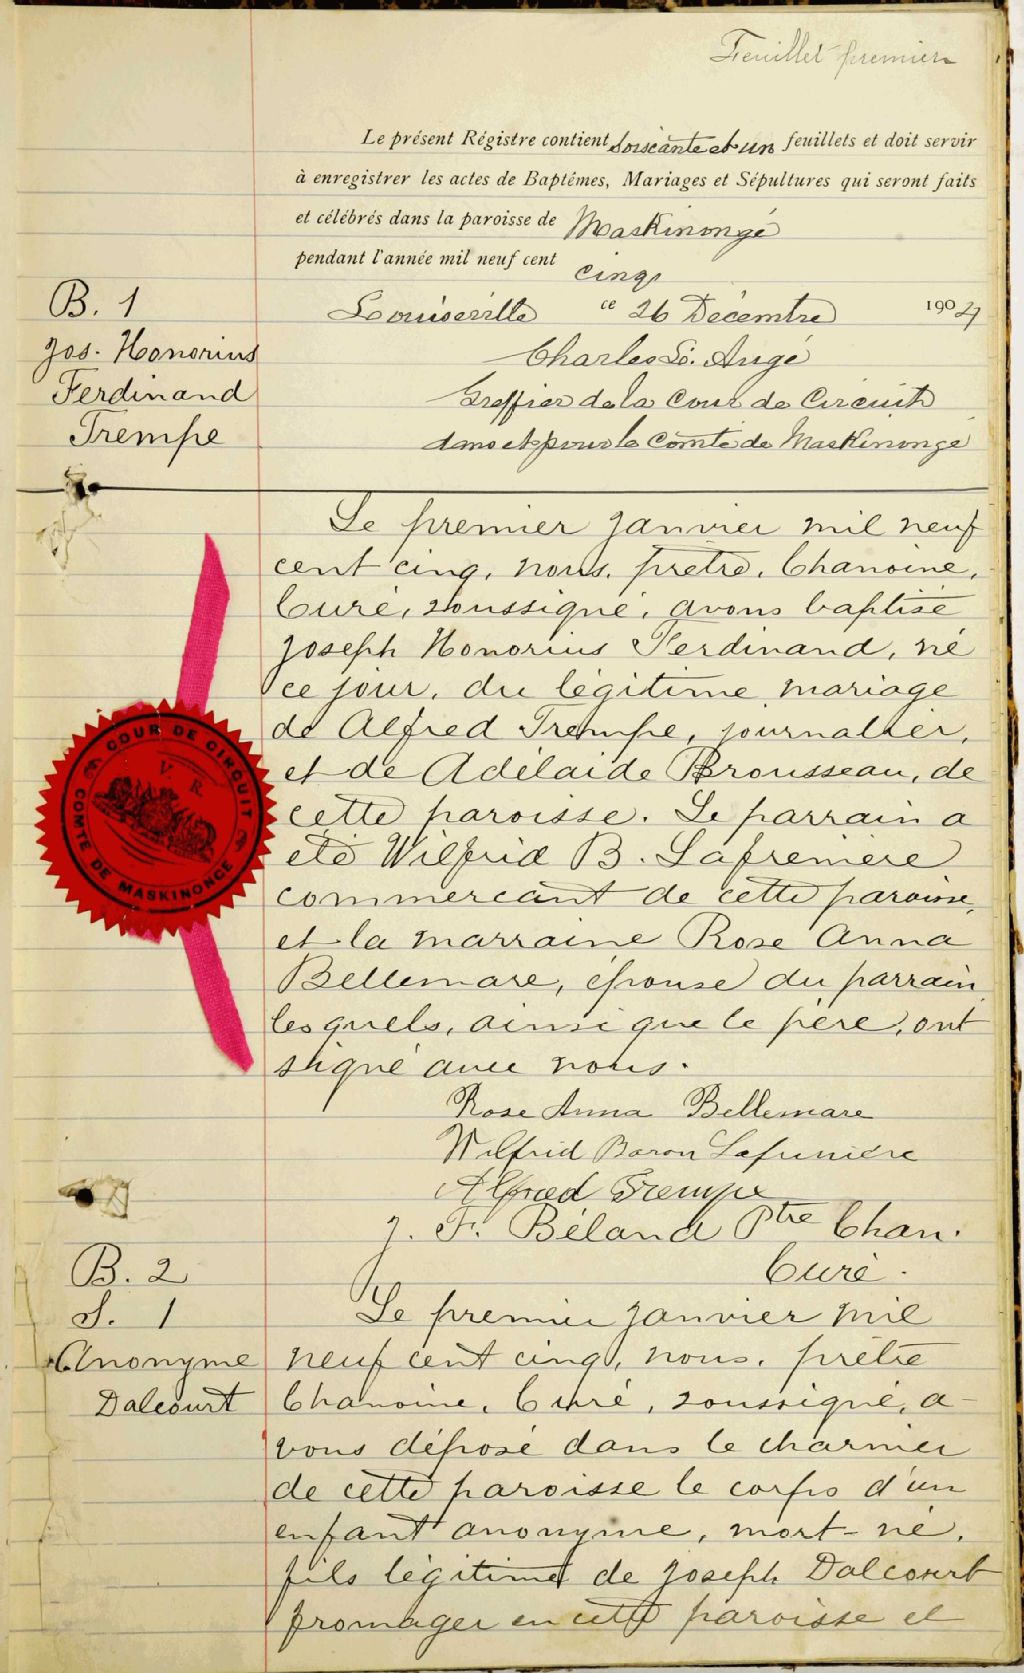 Feuillet premier
Le présent Régistre contient soixante et un feuillets et doit servir
à enregistrer les actes de Baptêmes, Mariages et Sépultures qui seront faits
et célébrés dans la paroisse de Maskinongé
pendant l'année mil neuf cent cinq
Louiseville ce 26 Décembre 1904
Charles Ls. Augé
Greffier de la Cour de Circuit
dans et pour le Comté de Maskinongé
B. 1
Jos. Honorius
Ferdinand
Trempe
Le premier janvier mil neuf
cent cinq, nous, prêtre, Chanoine,
Curé, soussigné, avons baptisé
Joseph Honorius Ferdinand, né
ce jour, du légitime mariage
de Alfred Trempe, journalier,
et de Adélaïde Brousseau, de
cette paroisse. Le parrain a
été Wilfrid B. Lafrenière
commerçant de cette paroisse,
et la marraine Rose Anna
Bellemare, épouse du parrain
lesquels, ainsi que le père, ont
signé avec nous.
COUR DE CIRCUIT
V. R.
COMTÉ DE MASKINONGÉ
Rose Anna Bellemare
Wilfrid Baron Lafrenière
Alfred Trempe
J. F. Béland Ptre Chan.
Curé.
B. 2
S. 1
Anonyme
Dalcourt
Le premier janvier mil
neuf cent cinq, nous, prêtre
Chanoine, Curé, soussigné, a-
vons déposé dans le charnier
de cette paroisse le corps d'un
enfant anonyme, mort-né,
fils légitime de Joseph Dalcourt
fromager en cette paroisse et